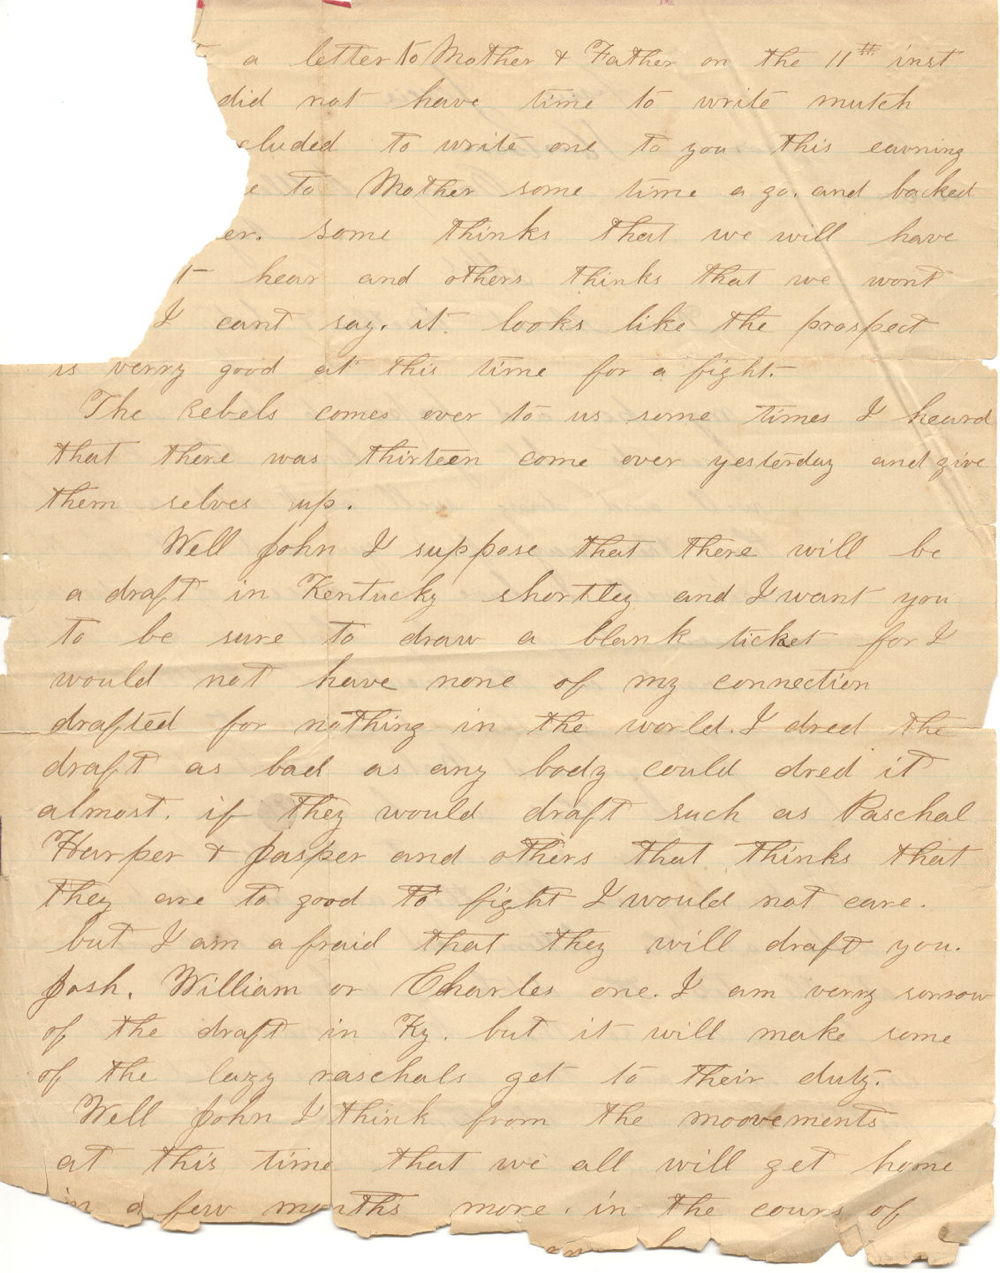 a letter to Mother & Father on the 11th inst
did not have time to write mutch
cluded to write one to you this eavning
e to Mother some time a go. and backed
er. some thinks that we will have
t hear and others thinks that we wont
I cant say. it looks like the prospect
is verry good at this time for a fight.
The Rebels comes over to us some times I heard
that there was thirteen come over yesterday and give
them selves up.
Well John I suppose that there will be
a draft in Kentucky shortley and I want you
to be sure to draw a blank ticket for I
would not have none of my connection
drafted for nothing in the world. I dred the
draft as bad as any body could dred it
almost. if they would draft such as Paschal
Harper & Jasper and others that thinks that
they are to good to fight I would not care.
but I am afraid that they will draft you.
Josh. William or Charles one. I am verry sorrow
of the draft in Ky. but it will make some
of the lazy raschals get to their duty.
Well John I think from the moovements
at this time that we all will get home
in a few months more. in the cours of